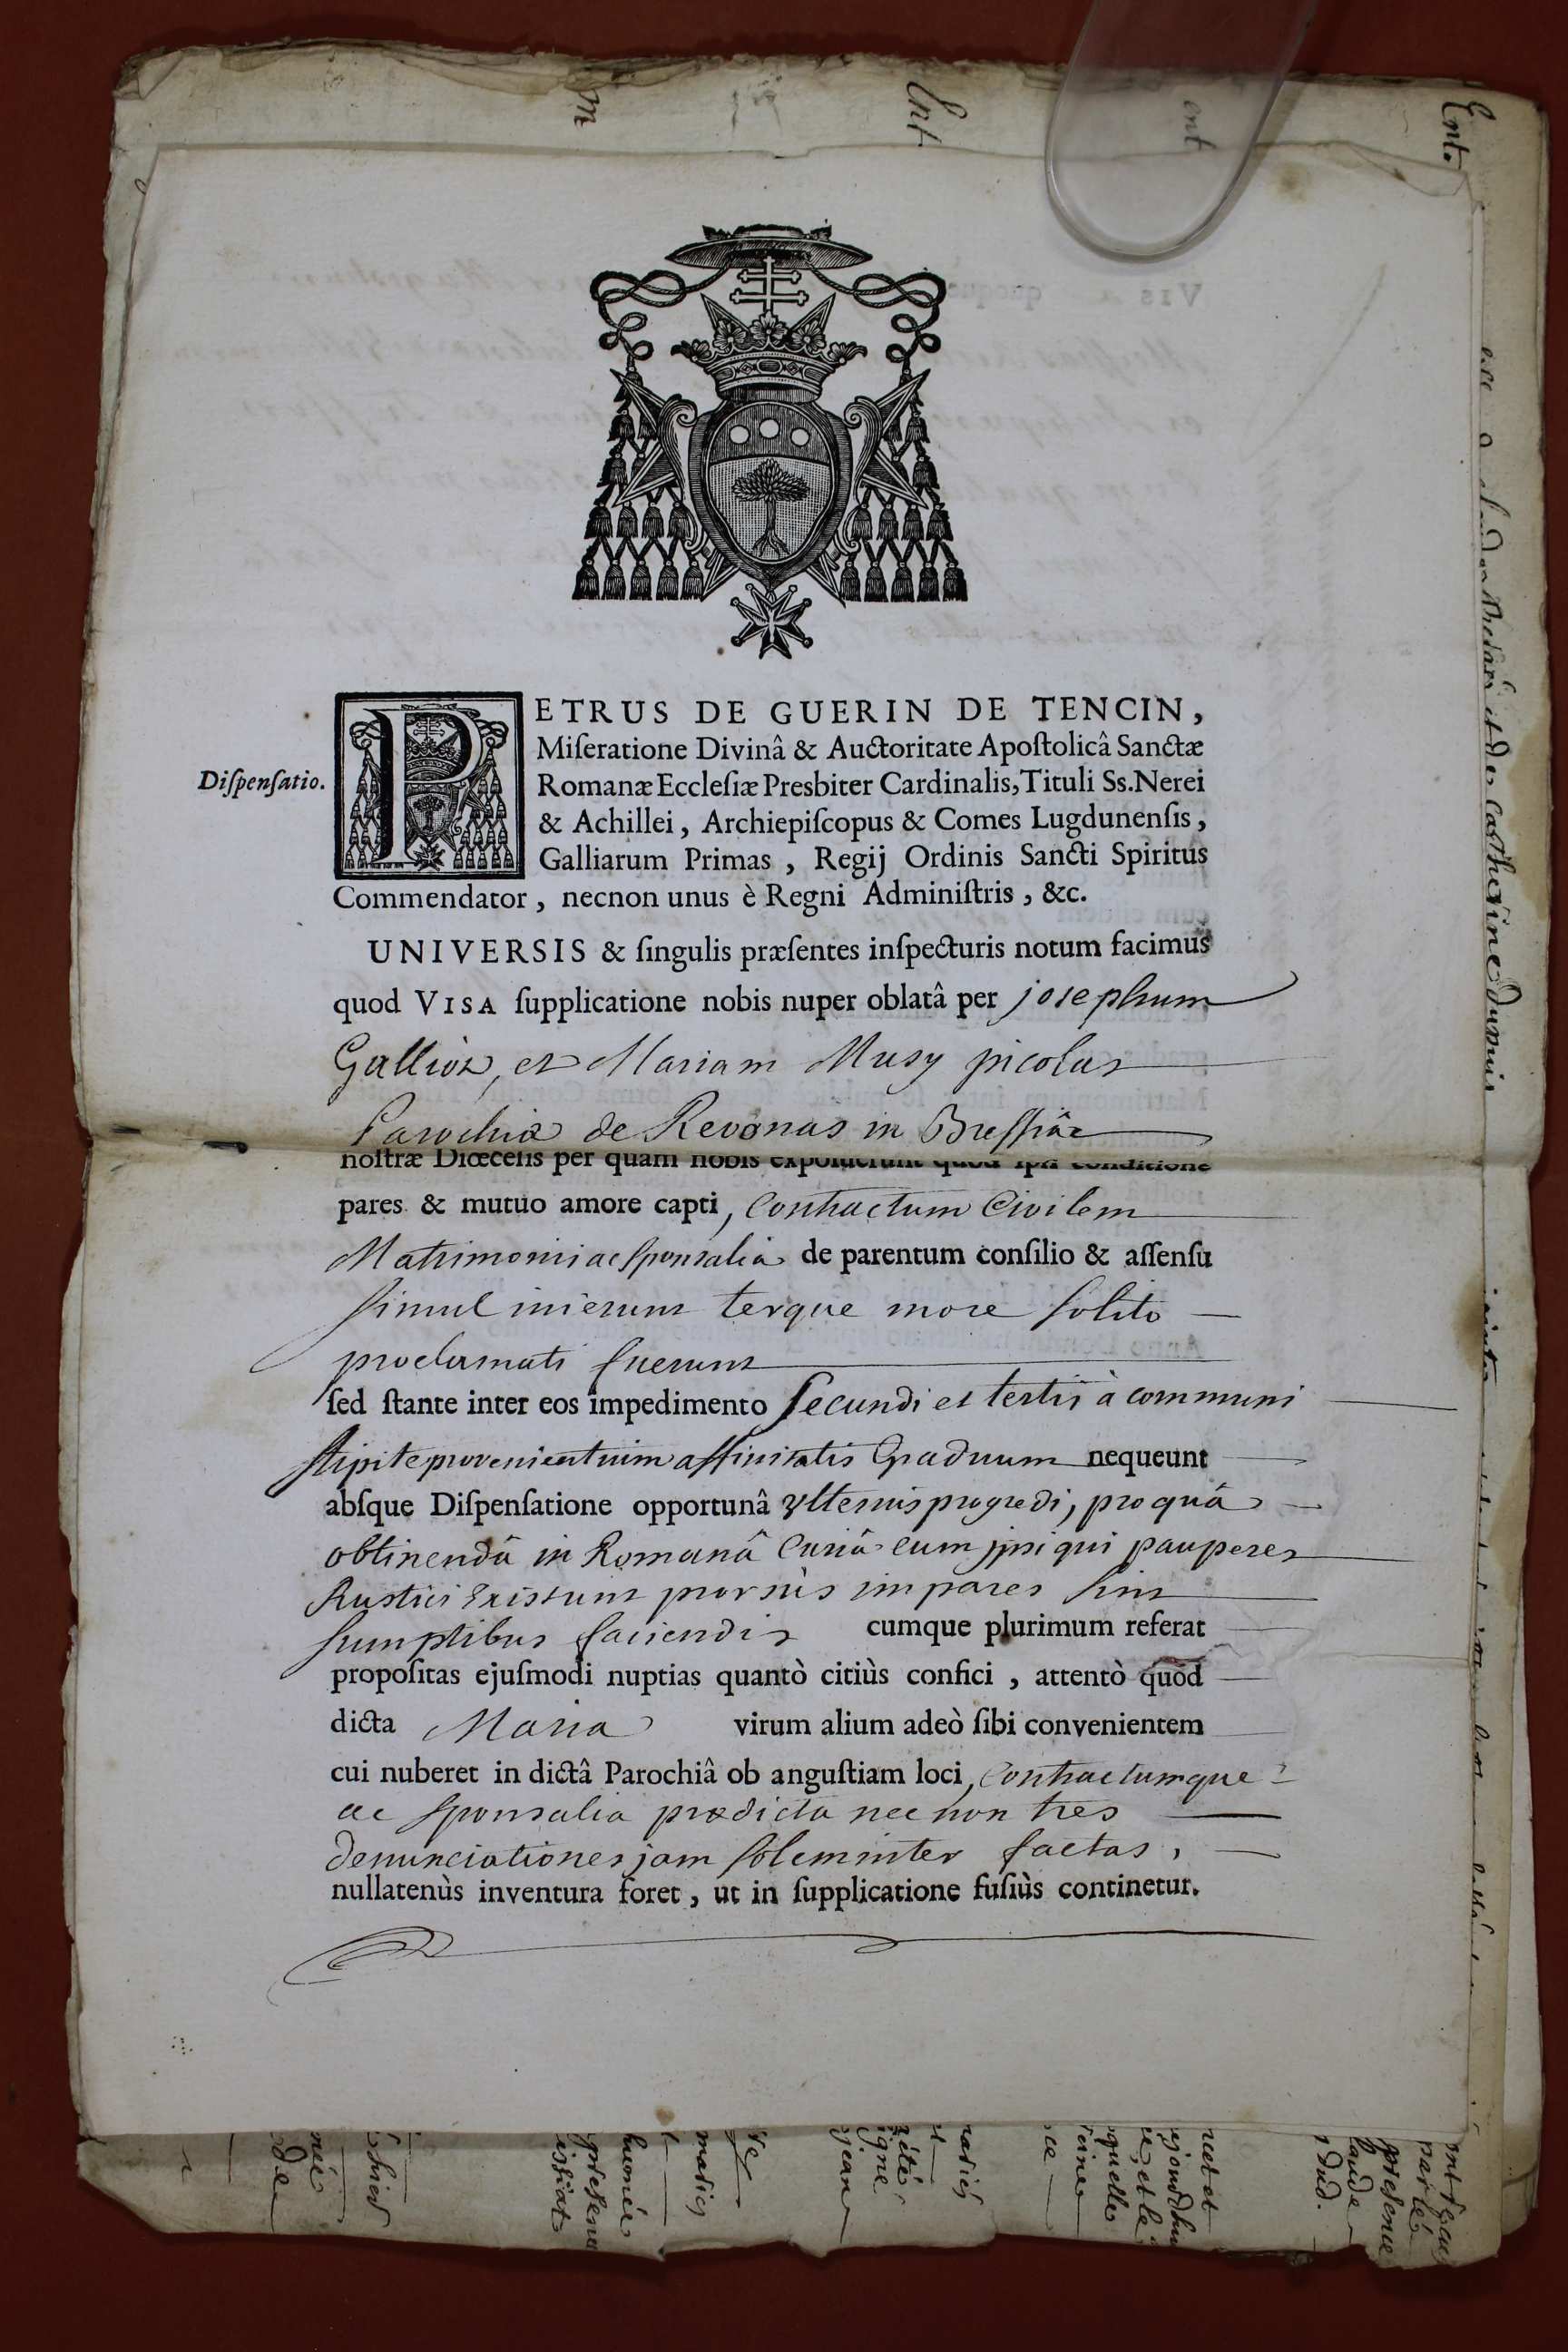 Diſpenſatio.
PETRUS DE GUERIN DE TENCIN,
Miſeratione Divinâ & Auctoritate Apoſtolicâ Sanctæ
Romanæ Eccleſiæ Presbiter Cardinalis, Tituli Ss. Nerei
& Achillei, Archiepiſcopus & Comes Lugdunenſis,
Galliarum Primas, Regij Ordinis Sancti Spiritus
Commendator, necnon unus è Regni Adminiſtris, &c.
UNIVERSIS & ſingulis præſentes inſpecturis notum facimus
quod VISA ſupplicatione nobis nuper oblatâ per josephum
et Mariam Musy picolat
Parochiæ de Revonas in Breſſiâ
noſtræ Diœceſis per quam nobis expoſuerunt quod ipſi conditione
pares & mutuo amore capti, Contractum Civilem
Matrimonii ac ſponsalia de parentum conſilio & aſſenſu
ſimul inierunt terque more ſolito
proclamati fuerunt
ſed ſtante inter eos impedimento ſecundi et tertii à communi
ſtipite provenientium affinitatis Graduum nequeunt
abſque Diſpenſatione opportunâ ulterius progredi, pro quâ
obtinendâ in Romanâ Curiâ cum ipsi qui pauperes
Rustici Existunt prorsùs impares ſint
ſumptibus faciendis cumque plurimum referat
propoſitas ejuſmodi nuptias quantò citiùs confici, attentò quod
dicta Maria virum alium adeò ſibi convenientem
cui nuberet in dictâ Parochiâ ob anguſtiam loci, Contractumque
ac ſponsalia prædicta nec non tres
denunciationes jam ſolemniter factas,
nullatenùs inventura foret, ut in ſupplicatione fuſiùs continetur.